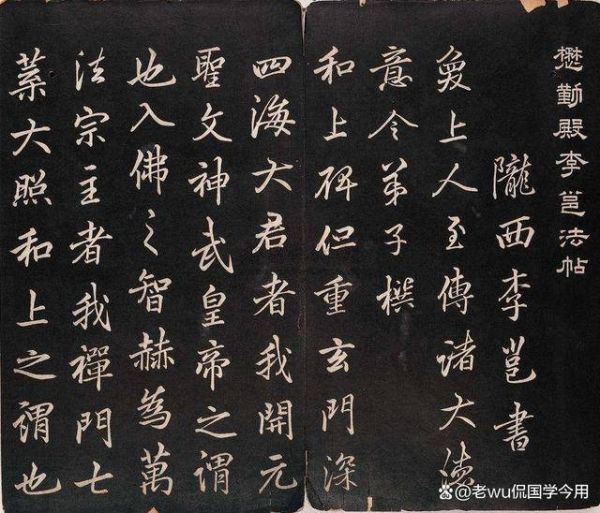 懋勤殿李邕法帖
隴西李邕書
上人至傳諸大德
意令弟子撰
和上碑但重玄門深
四海大君者我開元
聖文神武皇帝之謂
也入佛之智赫為萬
法宗主者我禪門七
葉大照和上之謂也
@老wu侃国学今用